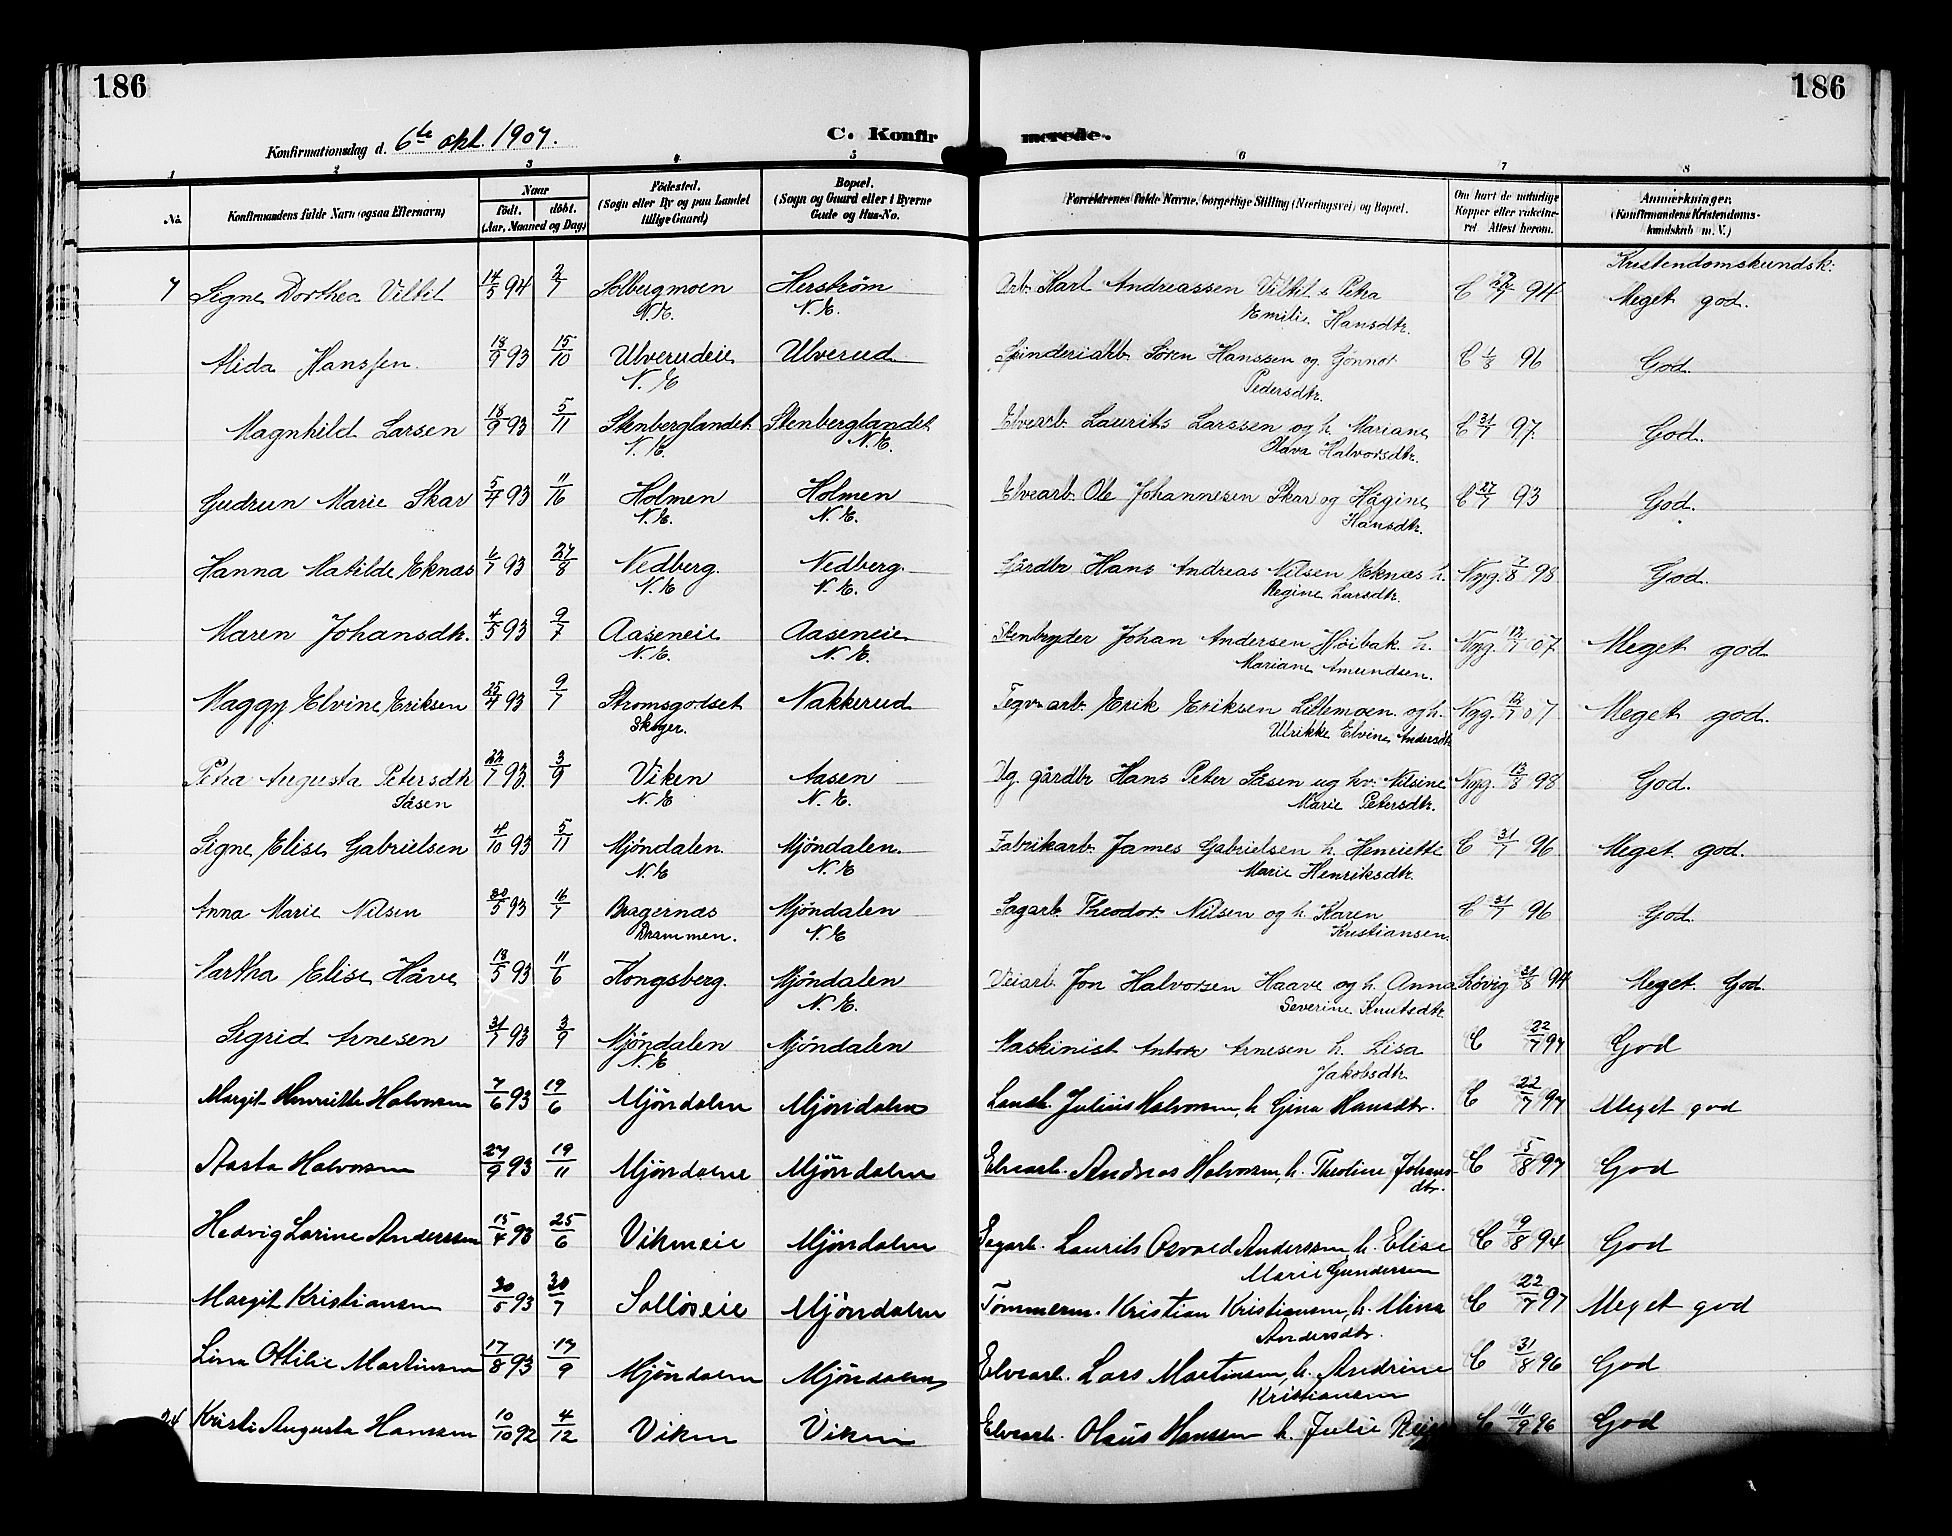 186
186
Konfirmationsdag d. 6te okt. 1907.
C. Konfirmerede.
1 2 3 4 5 6 7 8
No.
Konfirmandens fulde Navn (ogsaa Efternavn)
Naar
født. døbt.
(Aar, Maaned og Dag)
Födested.
(Sogn eller By og paa Landet tillige Gaard)
Bopæl.
(Sogn og Gaard eller i Byerne Gade og Hus-No.
Forældrenes fulde Navne, borgerlige Stilling (Næringsvei) og Bopæl.
Om havt de naturlige Kopper eller vakcineret Attest herom.
Anmerkninger.
(Konfirmandens Kristendomskundskab m. V.)
Kristendomskundsk:
7 Signe Dorthea Viltil 14/5 94 2/7 Solbergmoen Herstrøm Arb. Karl Andreassen Viltil & Petra C 94 Meget god.
N.E. N.E. Emilie Hansdtr.
Alida Hanssen 18/9 93 15/10 Ulverudeie Ulverud Spinderiarb. Søren Hanssen og Gønnor C 96 God.
N.E Pedersdtr.
Magnhild Larsen 18/9 93 5/11 Stenberglandet Stenberglandet Elvearb. Laurits Larssen og h. Mariane C 31/7 97. God.
N.E. N.E. Olava Halvorsdtr.
Gudrun Marie Skar 93 11/6 Holmen Holmen Elvearb. Ole Johannesen Skar og Hågine C 27/7 93 God.
N.E. N.E. Hansdtr.
Hanna Matilde Eknæs 6/7 93 27/8 Vedberg. Vedberg. Gårdbr Hans Andreas Nilsen Eknæs h. Nyg. 7/8 98 God.
N.E N.E. Regine Larsdtr.
Maren Johansdtr. 4/5 93 9/7 Aaseneie Aaseneie Stenbryder Johan Andersen Høibak h. Nyg. 12/7 07 Meget god
N.E. N.E. Mariane Amundsen.
Maggy Elvine Eriksen 25/4 93 9/7 Strømsgodset Nakkerud Tegv. arb. Erik Eriksen Littemoen og h. Nyg. 12/7 07 Meget god.
Skoger. Ulrikke Elvine Andersdtr
Petra Augusta Petersdtr 93. 3/9 Viken Aasen gårdbr Hans Peter Såsen og hv. Nilsine Nyg. 98 God.
Såsen N.E N.E. Marie Petersdtr.
Signe Elise Gabrielsen 4/10 93 5/11 Mjöndalen. Mjöndalen. Fabrikarb. James Gabrielsen h. Henriette C 31/7 96 Meget god.
N.E N.E Marie Henriksdtr.
Anna Marie Nilsen 30/5 93 16/7 Bragernæs Mjöndalen Sagarb. Theodor Nilsen og h. Karen C 31/7 96 God.
Drammen. N.E Kristiansen.
Martha Elise Håve 18/5 93 11/6 Kongsberg. Mjöndalen Veiarb. Jon Halvorsen Haave og h. Anna Løvig 31/8 94 Meget God.
N.E. Severine Knutsdtr.
Sigrid Arnesen 31/7 93 3/9 Mjöndalen Mjöndalen Maskinist Anton Arnesen h. Lisa C 22/7 97 God
N.E Jakobsdtr.
Margit Henriette Halvorsen 7/6 93 19/6 Mjöndalen Mjöndalen Landh. Julius Halvorsen, h. Gina Hansdtr. C 22/7 97 Meget god
Aasta Halvorsen 27/9 93 19/11 Mjöndalen Mjöndalen Elvearb. Andreas Halvorsen, h. Theoline Johans- C 5/8 97 God
dtr.
Hedvig Larine Anderssen 15/4 93 25/6 Vikeneie Mjöndalen Sagarb. Laurits Osvald Anderssen, h. Elise C 9/8 94 God
Marie Gundersen
Margit Kristiansen 30/5 93 30/7 Solløseie Mjöndalen Tömmerm. Kristian Kristiansen, h. Mina C 22/7 97 Meget god
Andersdtr.
Lina Ottilie Martinsen 17/8 93 17/9 Mjöndalen Mjöndalen Elvearb. Lars Martinsen, h. Andrine C 31/8 96 God
Kristiansen
24 Kristi Augusta Hanssen 10/10 92 4/12 Viken Viken Elvearb. Olaus Hanssen h. Julie C 11/9 96 God